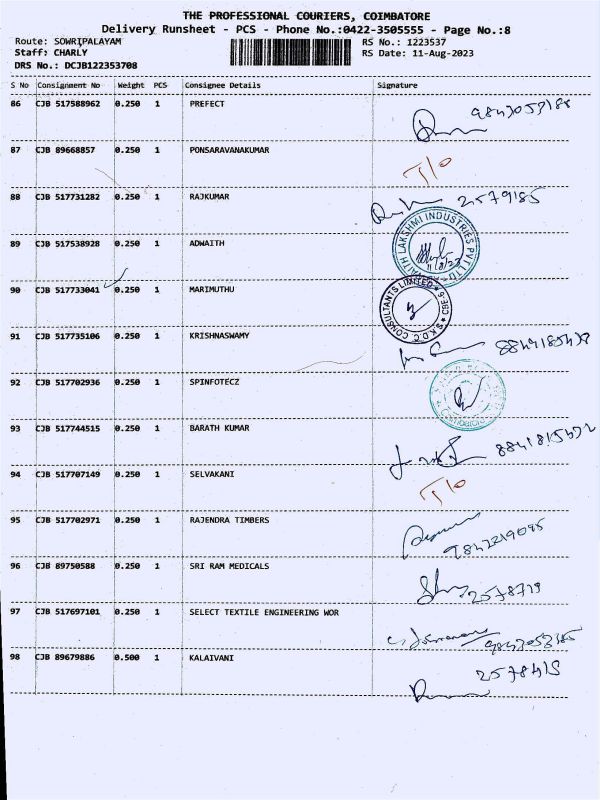 THE PROFESSIONAL COURIERS, COIMBATORE
Delivery Runsheet - PCS - Phone No.:0422-3505555 - Page No.:8
Route: SOWRIPALAYAM RS No.: 1223537
Staff: CHARLY RS Date: 11-Aug-2023
DRS No.: DCJB122353708
S No Consignment No Weight PCS Consignee Details Signature
86 CJB 517588962 0.250 1 PREFECT
87 CJB 89668857 0.250 1 PONSARAVANAKUMAR T/o
88 CJB 517731282 0.250 1 RAJKUMAR 2579185
89 CJB 517538928 0.250 1 ADWAITH LAKSHMI INDUSTRIES PVT LTD
90 CJB 517733041 0.250 1 MARIMUTHU CONSULTANTS LIMITED
91 CJB 517735106 0.250 1 KRISHNASWAMY
92 CJB 517702936 0.250 1 SPINFOTECZ
93 CJB 517744515 0.250 1 BARATH KUMAR
94 CJB 517707149 0.250 1 SELVAKANI T/o
95 CJB 517702971 0.250 1 RAJENDRA TIMBERS
96 CJB 89750588 0.250 1 SRI RAM MEDICALS 2578719
97 CJB 517697101 0.250 1 SELECT TEXTILE ENGINEERING WOR
98 CJB 89679886 0.500 1 KALAIVANI